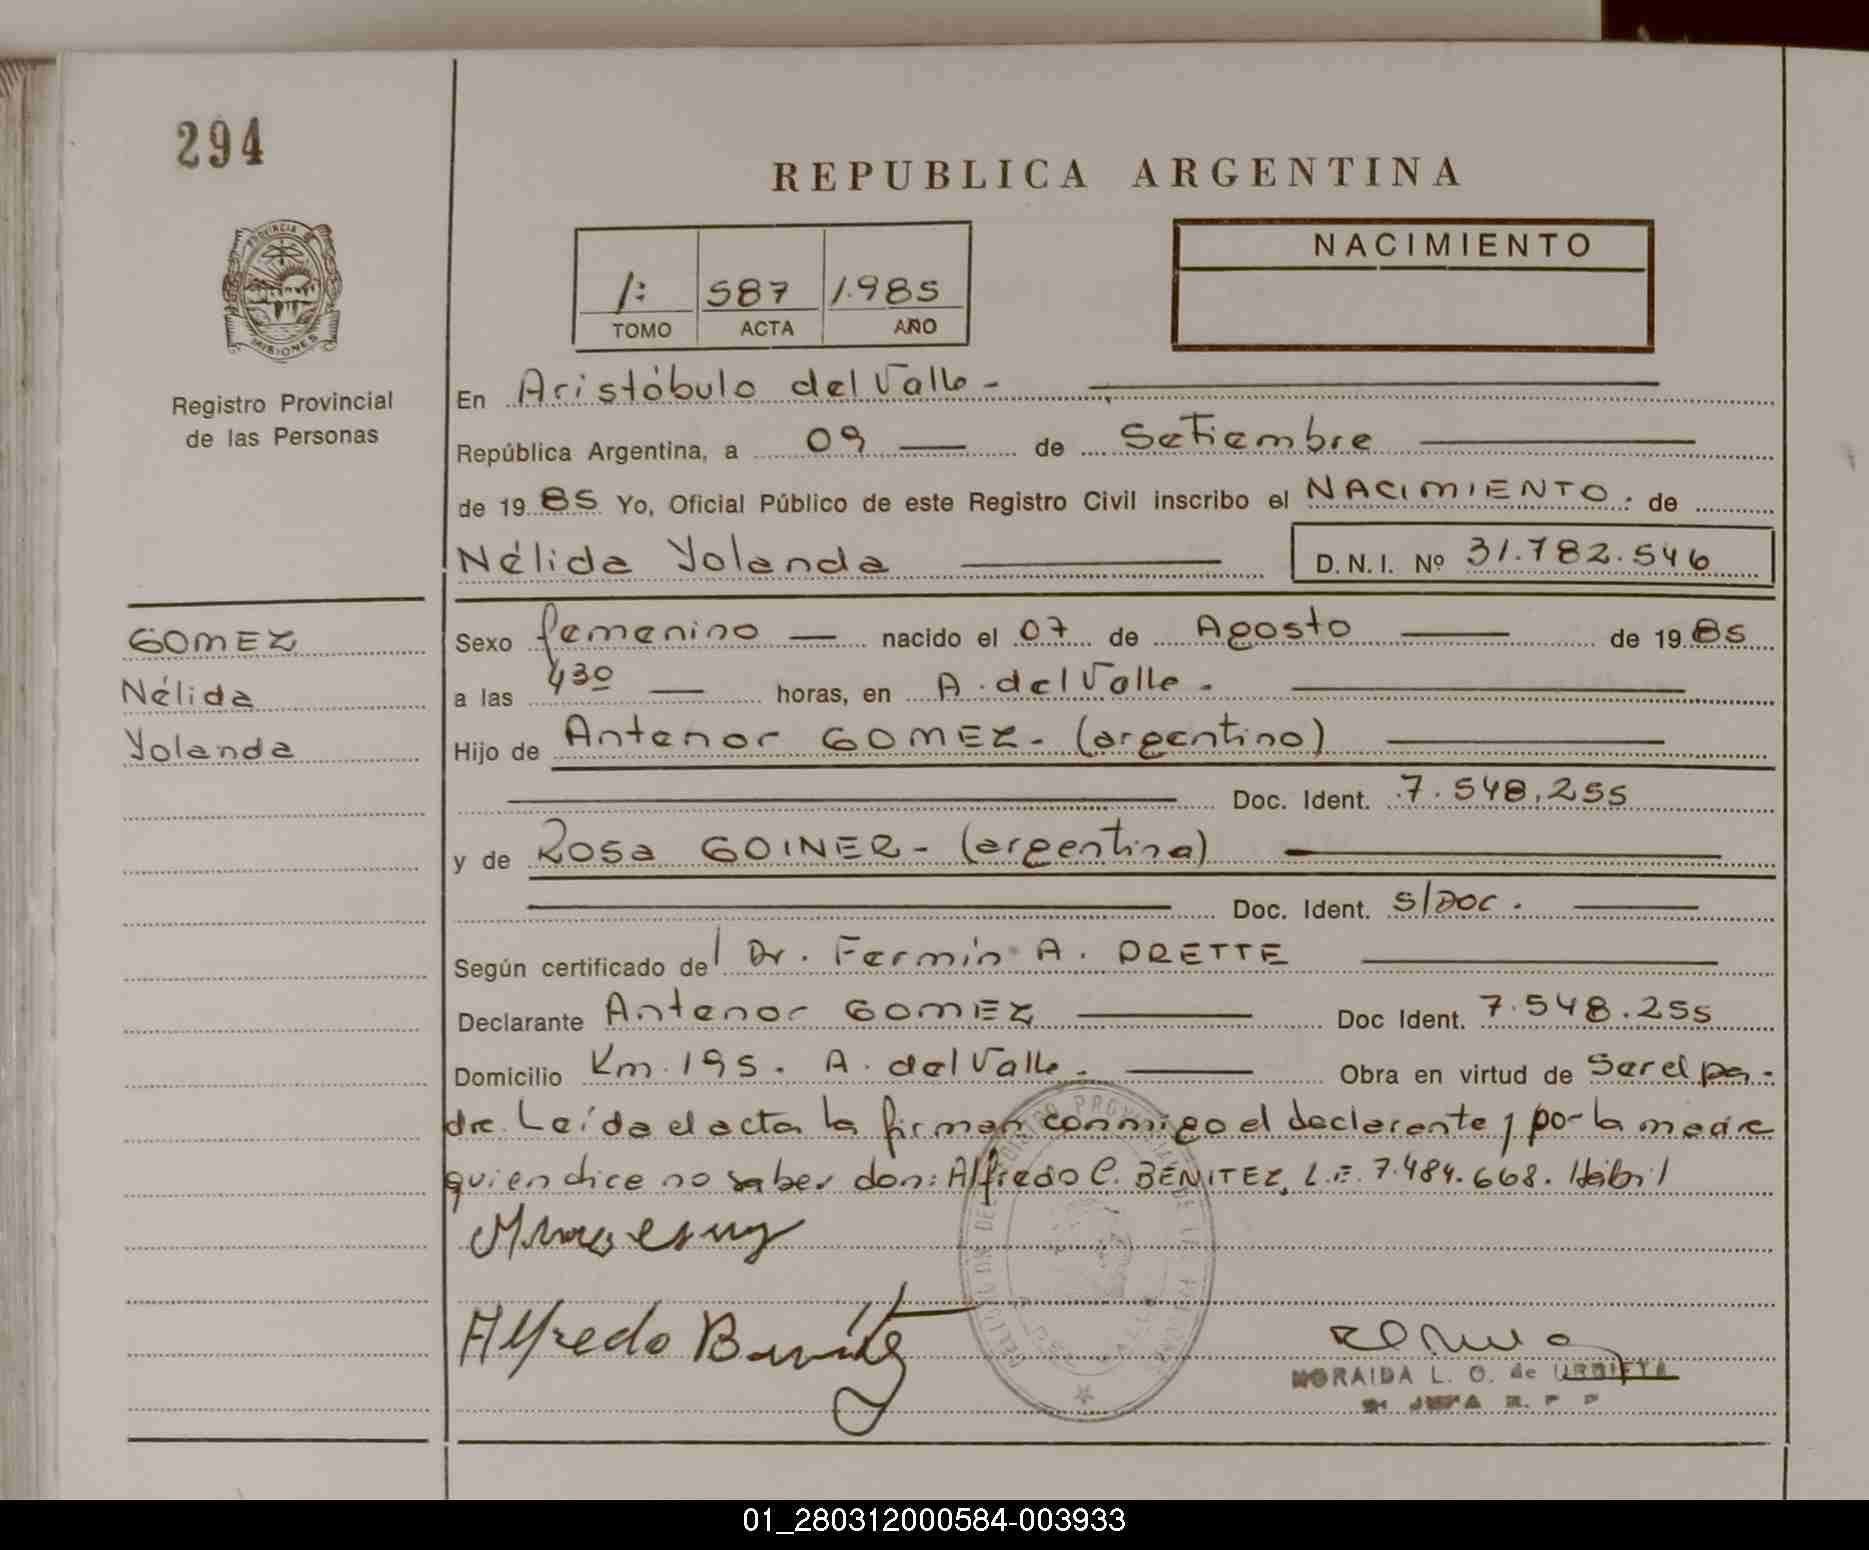 294
REPUBLICA ARGENTINA
PROVINCIA DE
MISIONES
Registro Provincial
de las Personas
1: 587 1.985
TOMO ACTA AÑO
NACIMIENTO
En Aristóbulo del Valle -
República Argentina, a 09 de Setiembre
de 1985 Yo, Oficial Público de este Registro Civil inscribo el NACIMIENTO. de
Nélida Yolanda D.N.I. Nº 31.782.546
GOMEZ
Nélida
Yolanda
Sexo femenino nacido el 07 de Agosto de 1985
a las 430 horas, en A. del Valle.
Hijo de Antenor GOMEZ - (argentino)
Doc. Ident. 7.548.255
y de Rosa GOINER - (argentina)
Doc. Ident. S/Doc.
Según certificado del Dr. Fermín A. ORETTE
Declarante Antenor GOMEZ Doc Ident. 7.548.255
Domicilio Km. 195. A. del Valle. Obra en virtud de Ser el pa-
dre. Leída el acta la firman conmigo el declarante y por la madre
quien dice no saber don: Alfredo C. BENITEZ, L.E. 7.484.668. Hábil
Alfredo Benitez
NORAIDA L. O. de URBIETA
JEFA R. P. P
01_280312000584-003933